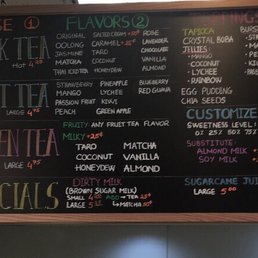 SE ① FLAVORS ② PINGS
K TEA
Hot 4.00
ORIGINAL SALTED CREAM +50¢ ROSE
OOLONG CARAMEL +25¢ LAVENDER
JASMINE TARO CHOCOLATE
MATCHA COCONUT VANILLA
THAI ICED TEA HONEYDEW ALMOND
TAPIOCA BURS
CRYSTAL BOBA
JELLIES:
MANGO
COCONUT
LYCHEE
RAINBOW
EGG PUDDING
CHIA SEEDS
T TEA
LARGE 4.75
STRAWBERRY PINEAPPLE BLUEBERRY
MANGO LYCHEE RED GUAVA
PASSION FRUIT KIWI
PEACH GREEN APPLE
CUSTOMIZE
SWEETNESS LEVEL:
0% 25% 50% 75%
SUBSTITUTE:
ALMOND MILK
SOY MILK
EN TEA
LARGE 4.75
FRUITY ANY FRUIT TEA FLAVOR
MILKY +25¢
TARO MATCHA
COCONUT VANILLA
HONEYDEW ALMOND
CIALS
DIRTY MILK
(BROWN SUGAR MILK)
SMALL 4.50 ADD → TEA 25¢
LARGE 5.50 → MATCHA 50¢
SUGARCANE JUI
LARGE 5.00